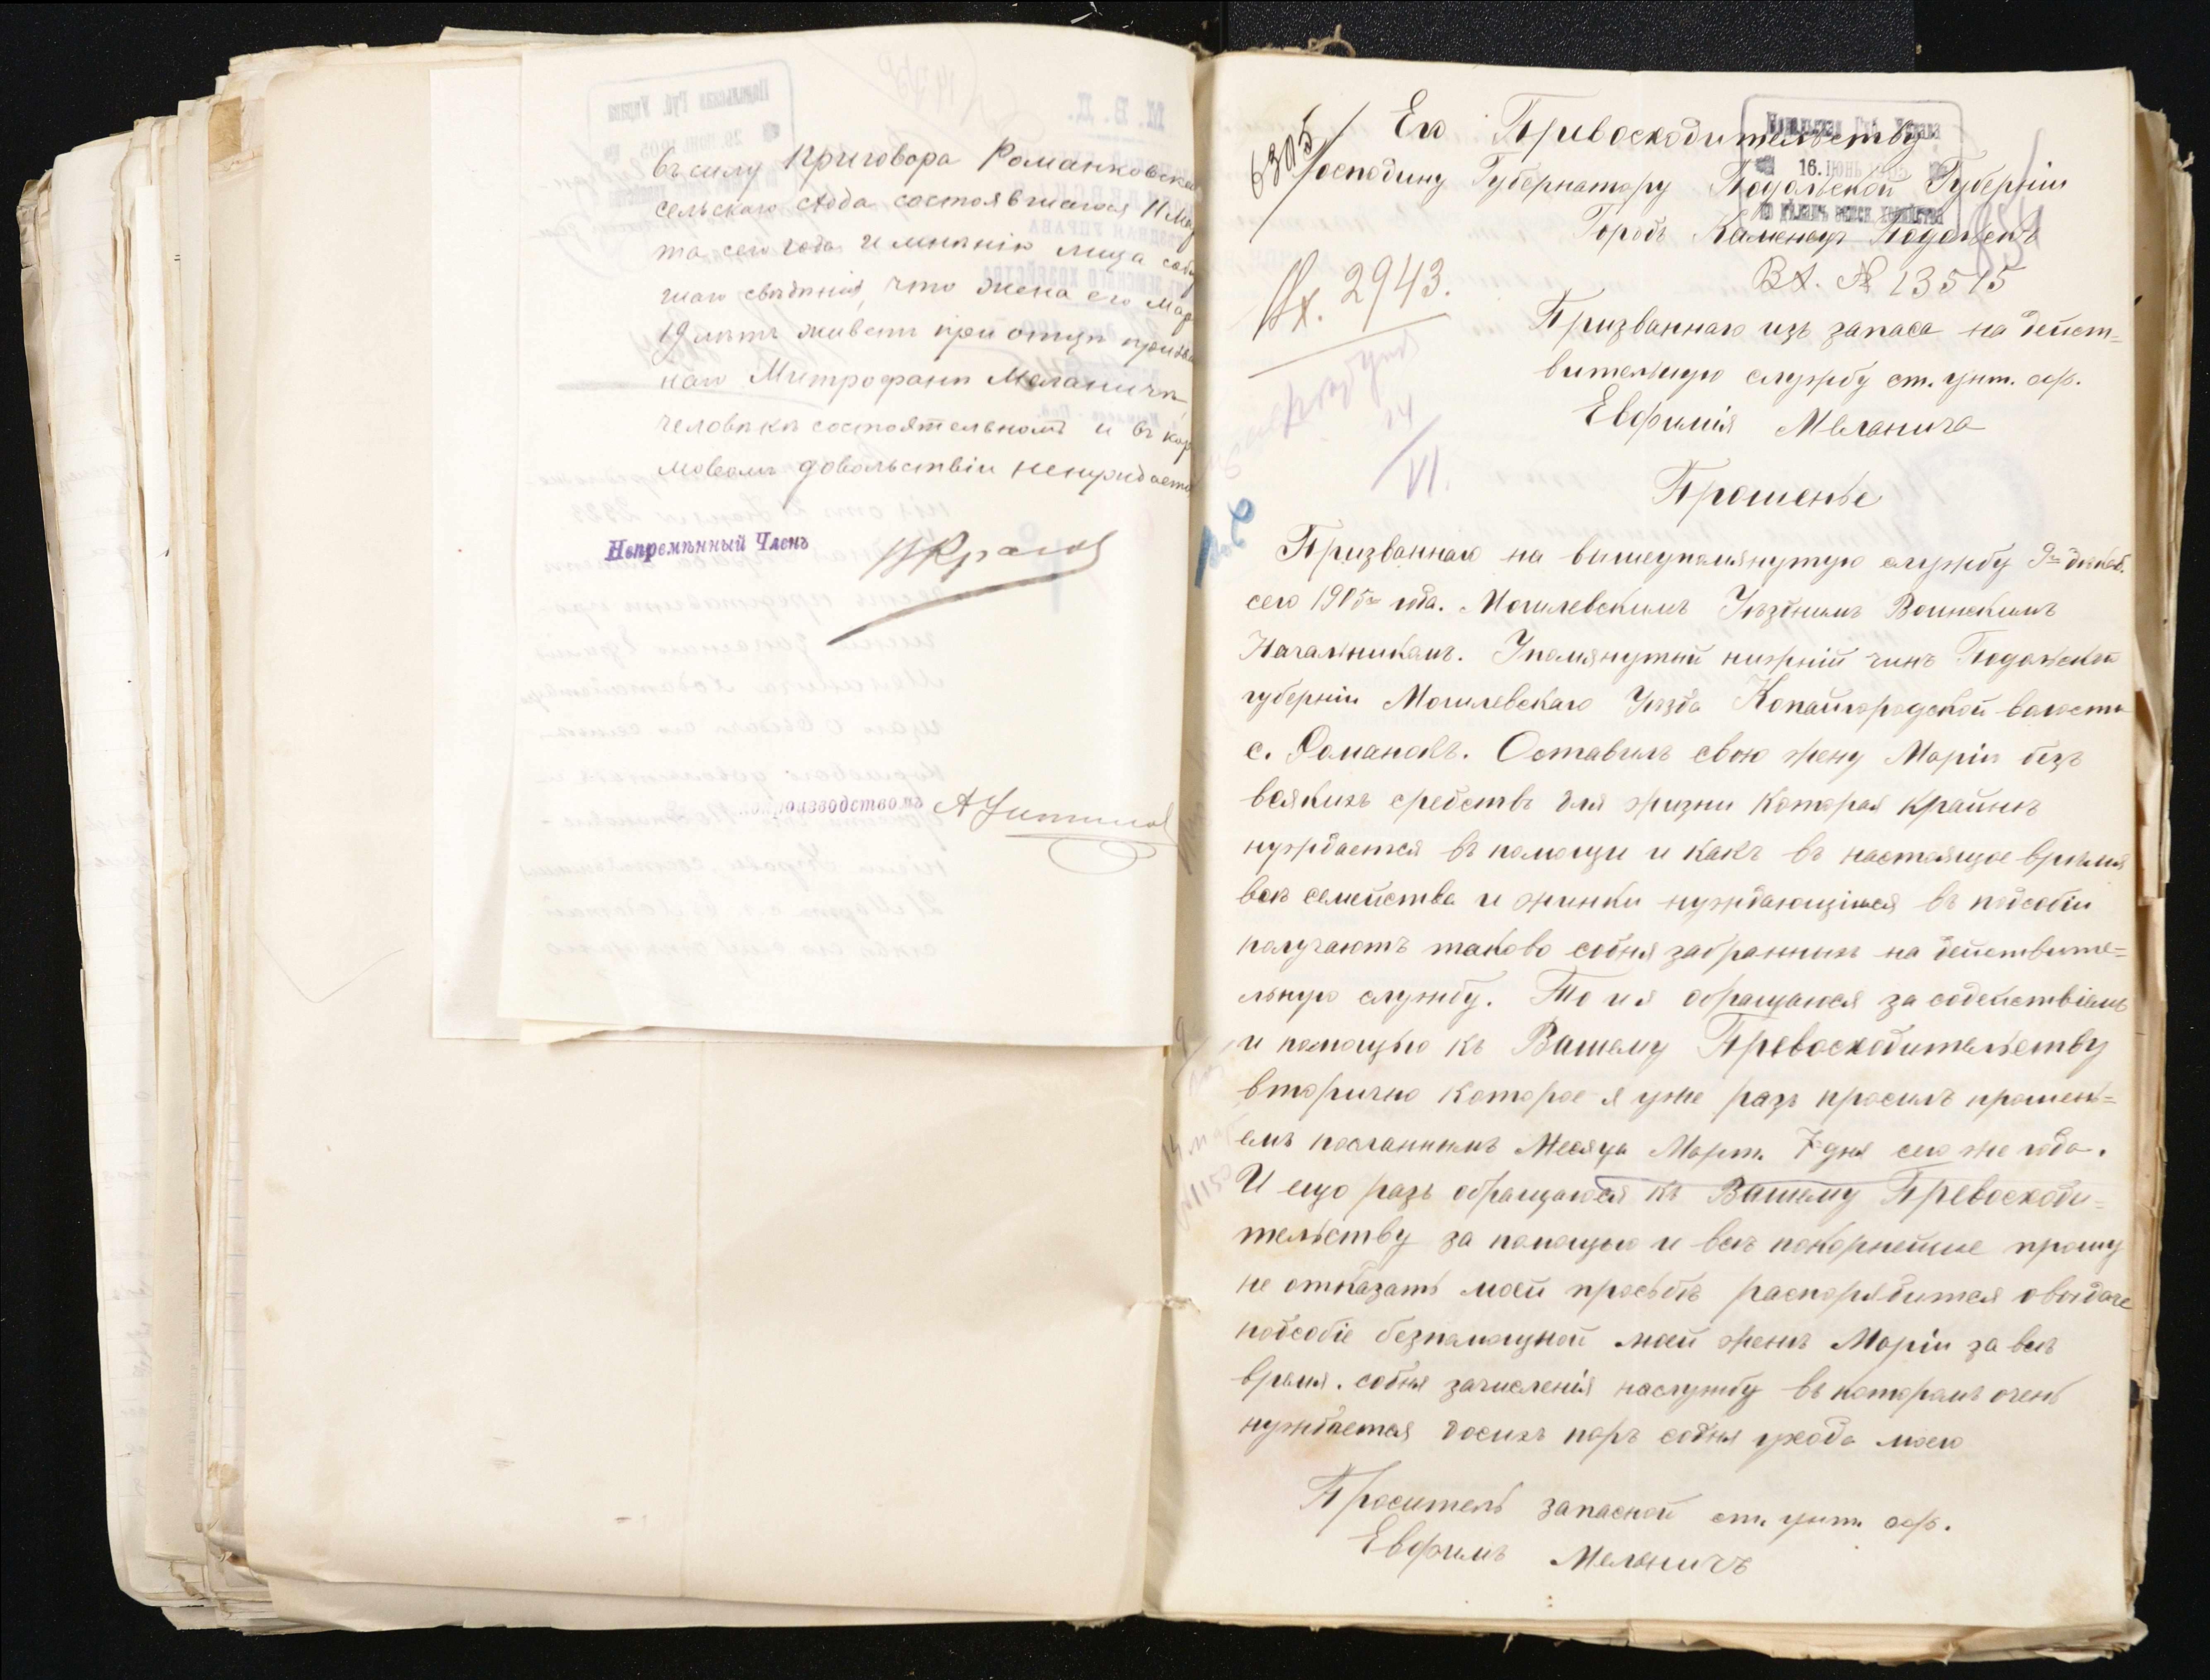 въ силу приговора Романковска
сельскаго схода состоявшагося 11 Мар
та сего года и мнѣнію лица собр
шаго свѣдѣнія, что жена его Мар
19 лѣтъ живетъ при отцѣ призва
наго Митрофанѣ Меланичѣ
человѣкѣ состоятельномъ и въ кор
мовомъ довольствіи ненуждается
Непремѣнный Членъ
производствомъ
6305
Его Превосходительству
Господину Губернатору Подольской Губерніи
Городъ Каменецъ Подольскъ
Подольская Губ. Управа
16. ІЮНЬ 1905
по дѣламъ земск. хозяйства
Вх. № 13515
Вх. 2943.
Призваннаго изъ запаса на дейст=
вительную службу ст. унт. оф.
Евфимія Меланича
24
VI.
Прошенье
Призваннаго на вишеупомянутую службу 9го декаб.
сего 1905го года. Могилевскимъ Уѣзднимъ Воинскимъ
Начальникамъ. Упомянутый нижній чинъ Подольской
губерніи Могилевскаго Уѣзда Копайгородской волости
с. Романокъ. Оставилъ свою жену Марію безъ
всякихъ средствъ для жизни которая крайнѣ
нуждается въ помощи и какъ въ настоящое время
всѣ семейства и жинки нуждающіися въ пособіи
получаютъ таково содня забранныхъ на действите=
льную службу. То и я обращаюся за содействіемъ
и помощью къ Вашему Превосходительству
вторично которое я уже разъ просилъ прошень=
емъ посланнимъ Месяца Март. 7 дня сего же года.
И ещо разъ обращаюся къ Вашему Превосходи=
тельству за помощью и всѣ покорнейше прошу
не отказать моей просьбѣ распорядится о выдаче
пособіе безпомощной моей женѣ Маріи за всѣ
время. содня зачисленія наслужбу въ которомъ очень
нуждается досихъ поръ содня ухода моего
Проситель запасной ст. унт. оф.
Евфимъ Мельничъ